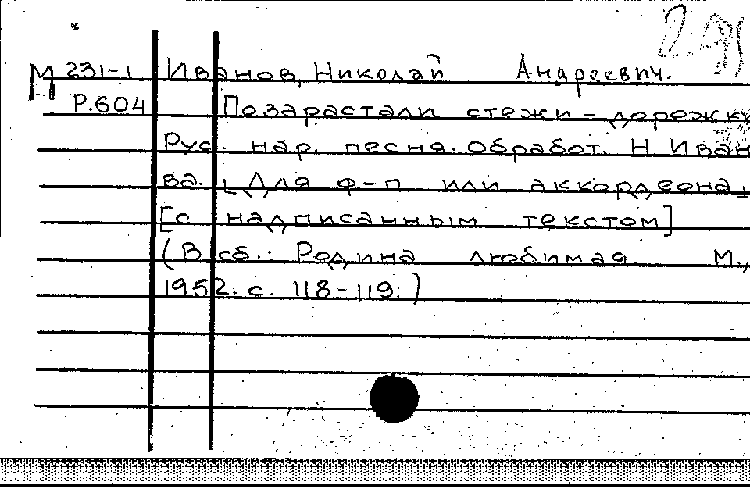 М 231-1 Иванов, Николай Андреевич.
Р.604 Позарастали стежки-дорожки
Рус. нар. песня. Обработ. Н. Иван
ва. [Для ф-п или аккордеона,
[с надписанным текстом]
(В сб.: Родина любимая М.,
1952. с. 118-119.)